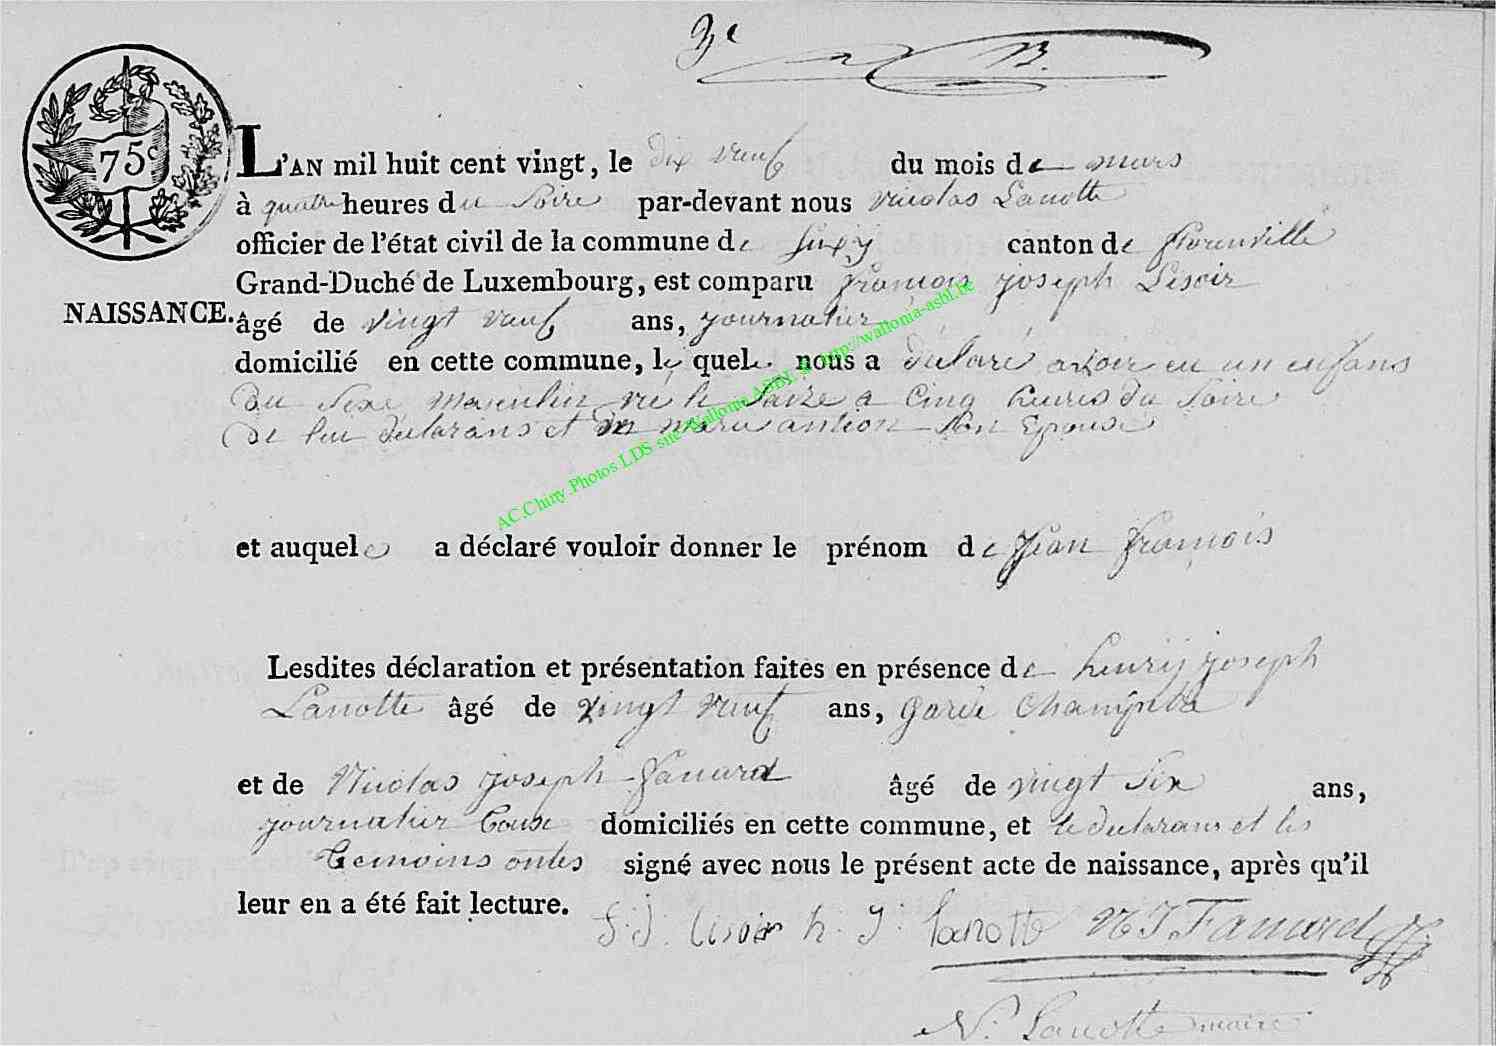 3e
B.
75c
L'AN mil huit cent vingt, le dix neuf du mois de mars
à quatre heures du Soire par-devant nous nicolas Lanotte
officier de l'état civil de la commune de Suxy canton de florenville
Grand-Duché de Luxembourg, est comparu françois joseph Lesoir
NAISSANCE. âgé de vingt neuf ans, journalier
domicilié en cette commune, le quel nous a déclaré avoir eu un enfans
du Sexe masculin né le Saize a Cinq heures du Soire
de lui declarans et de marie antion Son Epouse
et auquel a déclaré vouloir donner le prénom de Jean françois
Lesdites déclaration et présentation faites en présence de henrij joseph
Lanotte âgé de vingt neuf ans, garde Champetre
et de Nicolas joseph fanard âgé de vingt Six ans,
journalier tous domiciliés en cette commune, et le declarans et les
temoins ont signé avec nous le présent acte de naissance, après qu'il
leur en a été fait lecture.
f. j. lisoir h. J. lanotte N J Fanard
N. Lanotte maire
AC.Chiny Photos LDS sur Wallonia ASBL http://wallonia-asbl.be